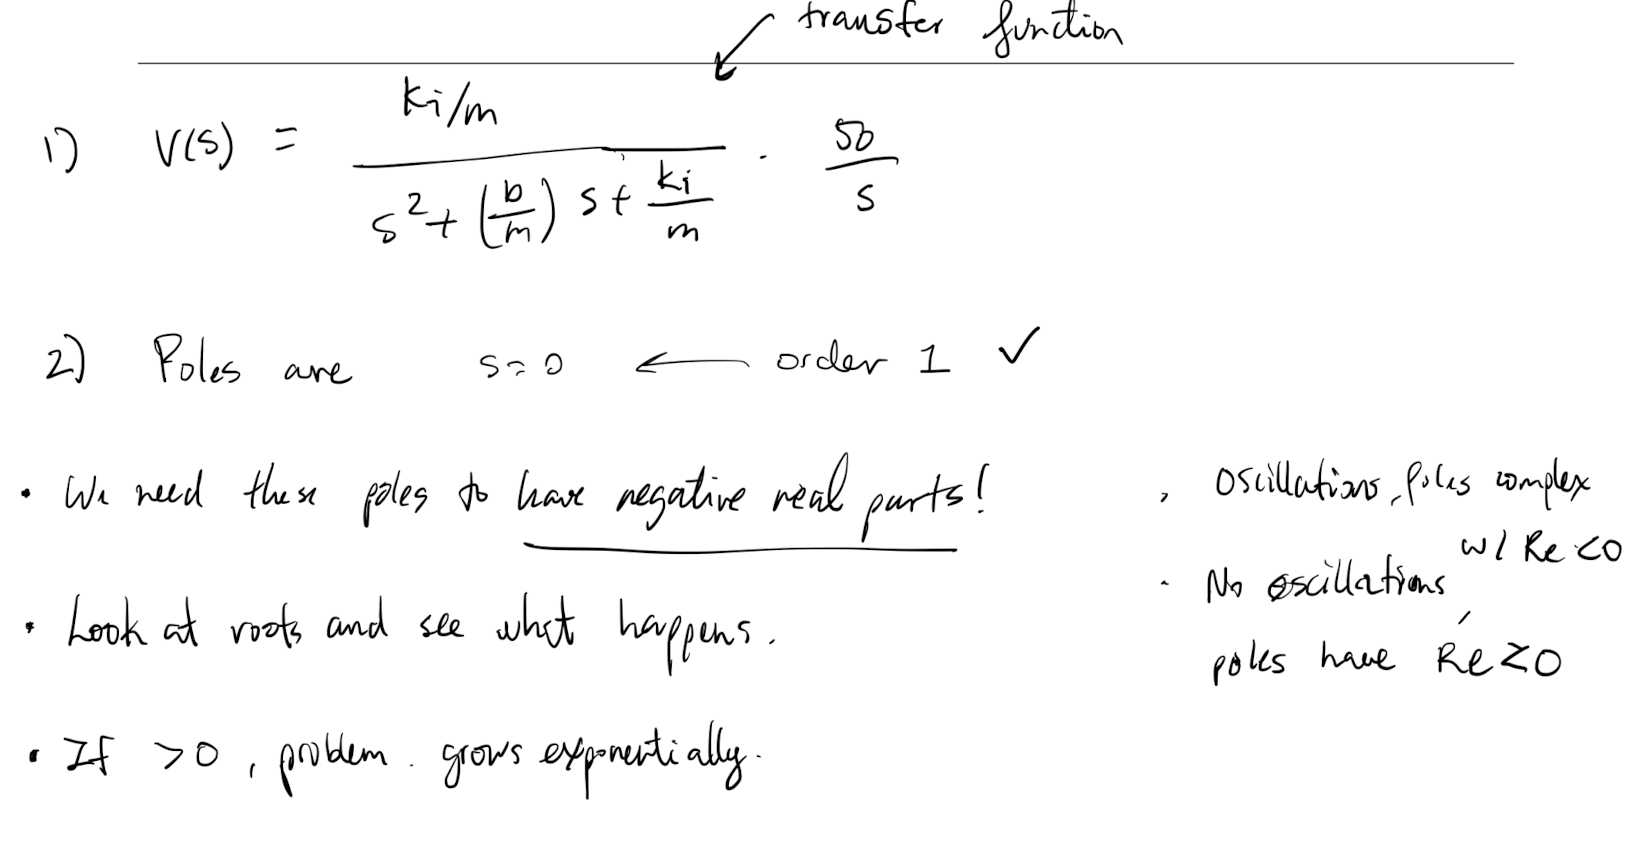 transfer function
1) V(s) = (ki/m) / (s² + (b/m) s + ki/m) · 50/s
2) Poles are s=0 ← order 1 ✓
• We need these poles to have negative real parts!
• Look at roots and see what happens.
• If >0, problem. grows exponentially.
· Oscillations, poles complex
w/ Re <0
· No oscillations,
poles have Re <0